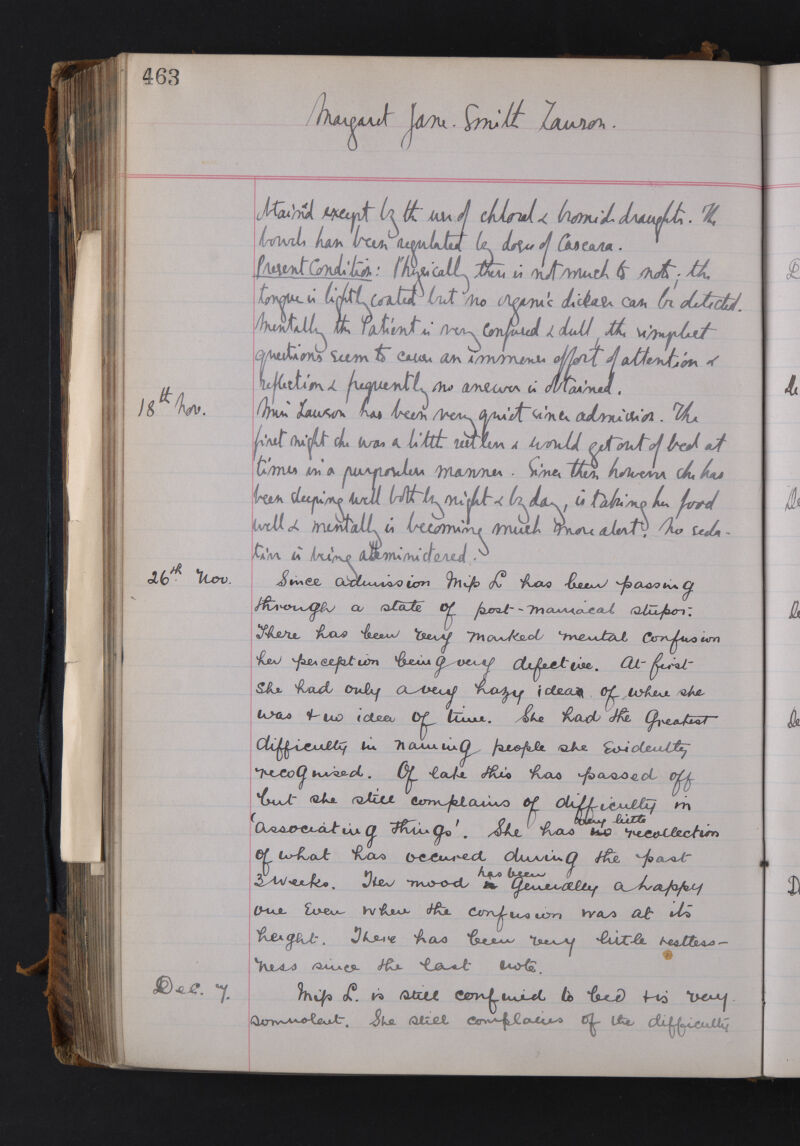 463
Margaret Jane. Smith Lawson.
obtained except by the use of chloral & bromide draughts. The
bowels have been regulated by doses of Cascara.
Present Condition: Physically there is not much to note; the
tongue is lightly coated but no organic disease can be detected.
Mentally the Patient is very confused & dull, the simplest
questions seem to cause an immense effort of attention &
reflection & frequently no answer is obtained.
18th Nov.
Miss Lawson has been very quiet since admission. The
first night she was a little restless & would get out of bed at
times in a purposeless manner. Since then however she has
been sleeping well both by night & by day, is taking her food
well & mentally is becoming much more alert. No seda-
tive is being administered.
26th Nov.
Since admission Miss L has been passing
through a state of post-maniacal stupor.
There has been very marked mental confusion
her perception being very defective. At first
she had only a very hazy idea of where she
was & no idea of time. She had the Greatest
difficulty in naming people she Evidently
recognised. Of late this has passed off
but she still complains of difficulty in
'associating things'. She has very little recollection
of what has occured during the past
3 weeks. Her mood has been Generally a happy
one Even when the confusion was at its
height. There has been very little restless-
ness since the last note.
Dec. 7.
Miss L. is still confined to bed & is very
somnolent. She still complains of the difficulty